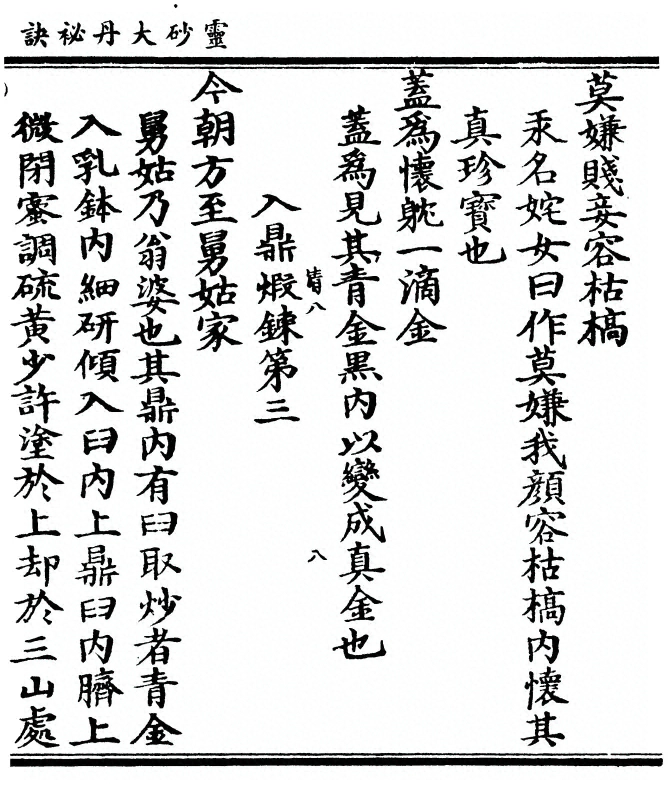 靈砂大丹祕訣
莫嫌賤妾容枯槁
汞名姹女曰作莫嫌我顏容枯槁內懷其
真珍寶也
蓋為懷躭一滴金
蓋為見其青金黑內以變成真金也
皆八
八
入鼎煆鍊第三
今朝方至舅姑家
舅姑乃翁婆也其鼎內有臼取炒者青金
入乳鉢內細研傾入臼內上鼎臼內臍上
微閉蜜調硫黃少許塗於上却於三山處